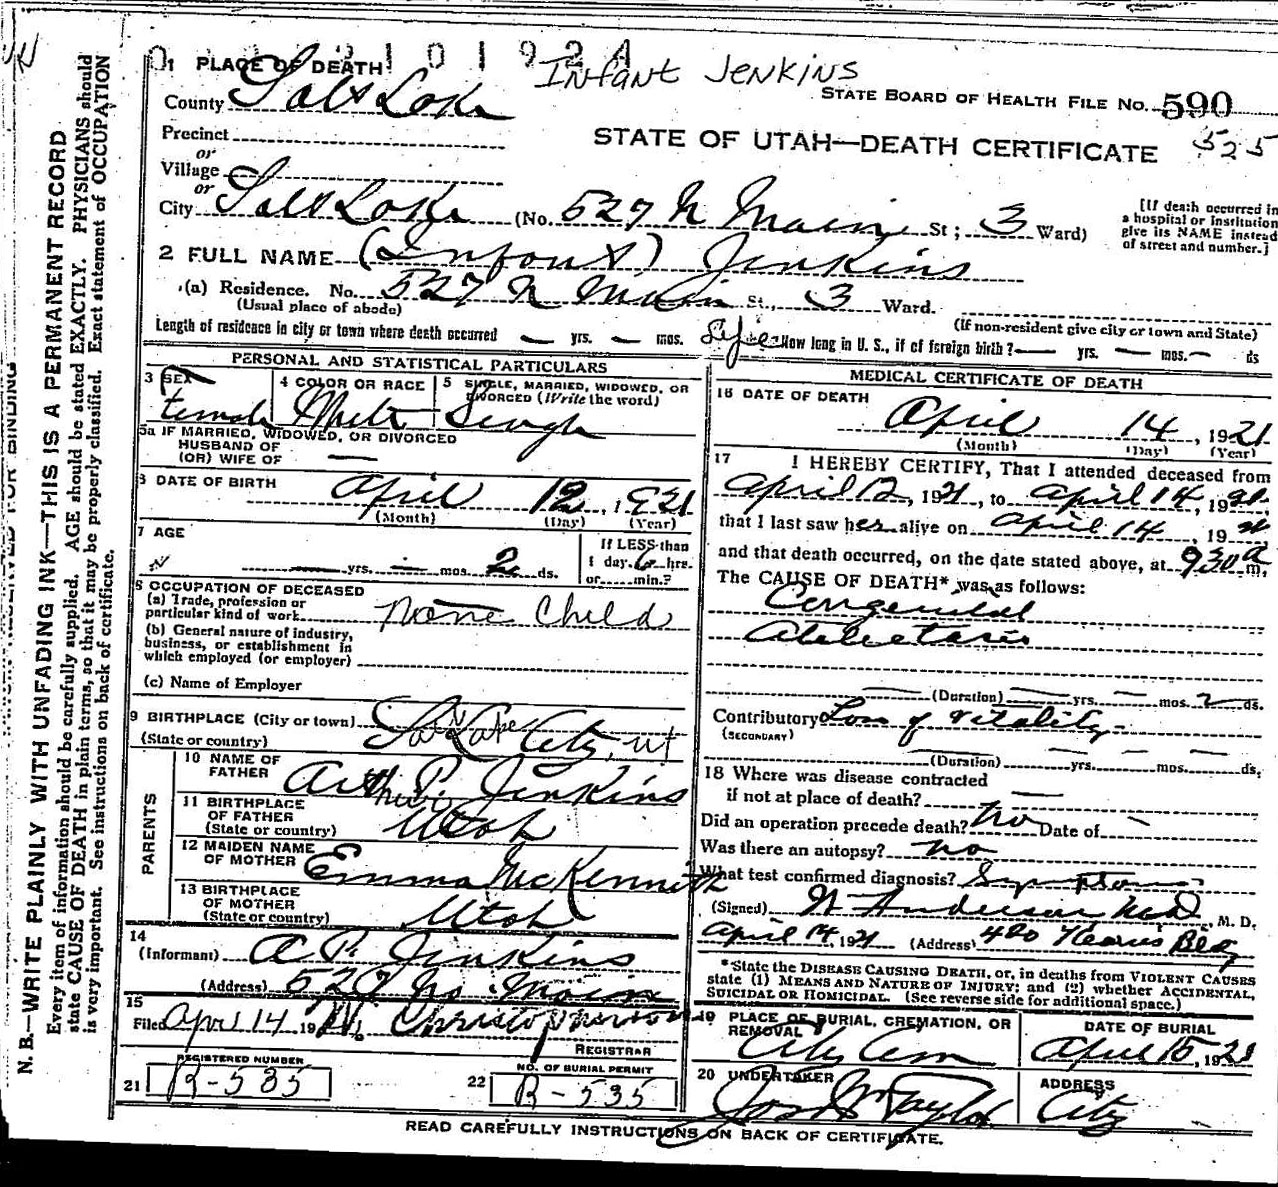 0 101924
1 PLACE OF DEATH Infant Jenkins
County Salt Lake STATE BOARD OF HEALTH FILE No. 590
Precinct STATE OF UTAH—DEATH CERTIFICATE 525
or
Village
or
City Salt Lake (No. 527 N Main St; 3 Ward) [If death occurred in a hospital or institution give its NAME instead of street and number.]
2 FULL NAME (Infant) Jenkins
(a) Residence. No. 527 N Main St., 3 Ward.
(Usual place of abode) (If non-resident give city or town and State)
Length of residence in city or town where death occurred — yrs. — mos. Life How long in U. S., if of foreign birth? — yrs. — mos. — ds
PERSONAL AND STATISTICAL PARTICULARS
3 SEX Female
4 COLOR OR RACE White
5 SINGLE, MARRIED, WIDOWED, OR DIVORCED (Write the word) Single
5a IF MARRIED, WIDOWED, OR DIVORCED
HUSBAND OF
(OR) WIFE OF —
6 DATE OF BIRTH April 12, 1921
(Month) (Day) (Year)
7 AGE — yrs. — mos. 2 ds.
If LESS than
1 day. 6 hrs.
or min.?
8 OCCUPATION OF DECEASED
(a) Trade, profession or
particular kind of work None Child
(b) General nature of industry,
business, or establishment in
which employed (or employer)
(c) Name of Employer
9 BIRTHPLACE (City or town) Salt Lake City, Ut
(State or country)
PARENTS
10 NAME OF
FATHER Arthur P. Jenkins
11 BIRTHPLACE
OF FATHER
(State or country) Utah
12 MAIDEN NAME
OF MOTHER Emma McKenneth
13 BIRTHPLACE
OF MOTHER
(State or country) Utah
14
(Informant) A P. Jenkins
(Address) 527 No. Main
15
Filed Apr 14 19
REGISTRAR
REGISTERED NUMBER
21 R-535
NO. OF BURIAL PERMIT
22 R-535
MEDICAL CERTIFICATE OF DEATH
16 DATE OF DEATH
April 14, 1921
(Month) (Day) (Year)
17 I HEREBY CERTIFY, That I attended deceased from
April 12, 1921, to April 14, 1921
that I last saw her alive on April 14 1921
and that death occurred, on the date stated above, at 930 a m.
The CAUSE OF DEATH* was as follows:
Congenital
Atelectasis
(Duration) — yrs. — mos. 2 ds.
Contributory Loss of Vitality
(SECONDARY)
(Duration) — yrs. — mos. — ds.
18 Where was disease contracted
if not at place of death? —
Did an operation precede death? No Date of —
Was there an autopsy? no
What test confirmed diagnosis? Symptoms
(Signed) W Anderson MD, M. D.
April 14, 1921 (Address) 420 Bldg
*State the DISEASE CAUSING DEATH, or, in deaths from VIOLENT CAUSES
state (1) MEANS AND NATURE OF INJURY; and (2) whether ACCIDENTAL,
SUICIDAL OR HOMICIDAL. (See reverse side for additional space.)
19 PLACE OF BURIAL, CREMATION, OR
REMOVAL City Cem
DATE OF BURIAL
April 15, 1921
20 UNDERTAKER
Jos Wm Taylor
ADDRESS
City
READ CAREFULLY INSTRUCTIONS ON BACK OF CERTIFICATE.
N. B.—WRITE PLAINLY WITH UNFADING INK—THIS IS A PERMANENT RECORD
Every item of information should be carefully supplied. AGE should be stated EXACTLY. PHYSICIANS should
state CAUSE OF DEATH in plain terms, so that it may be properly classified. Exact statement of OCCUPATION
is very important. See instructions on back of certificate.